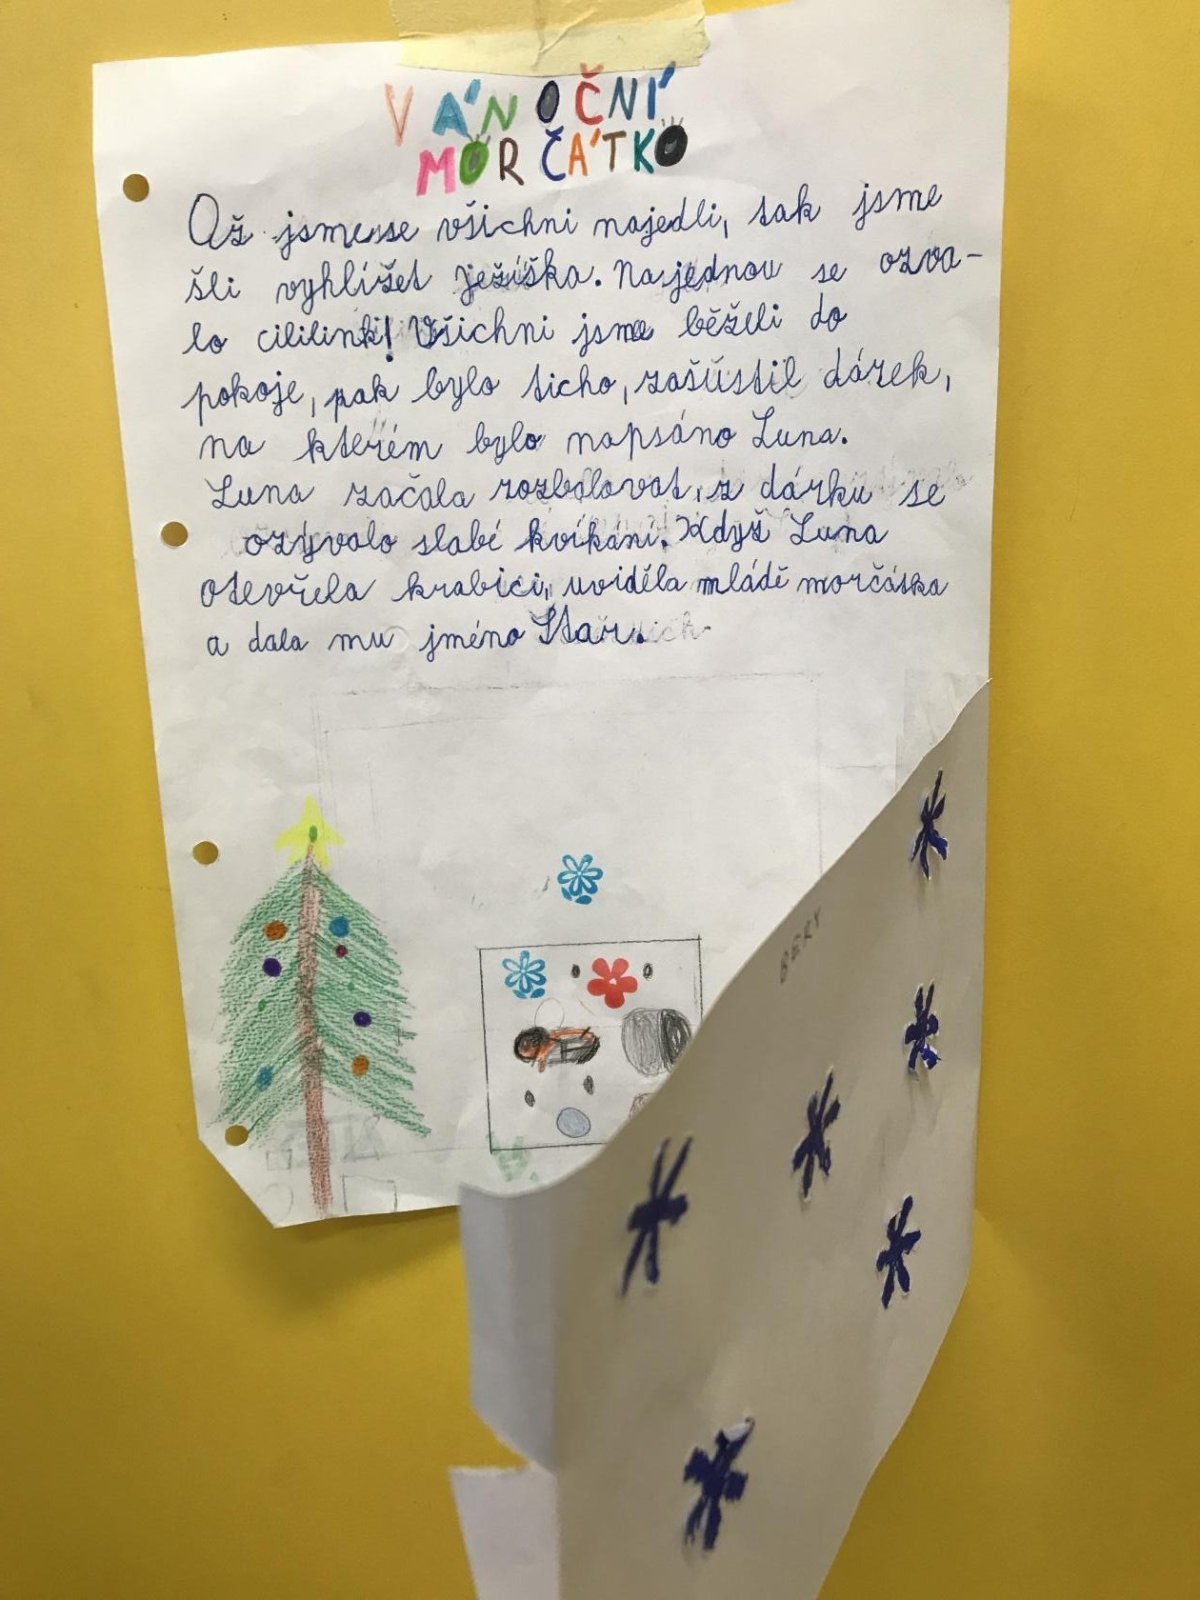 VÁNOČNÍ
MORČÁTKO
Až jsme se všichni najedli, tak jsme
šli vyhlížet ježíška. Najednou se ozva-
lo cililink! Všichni jsme běželi do
pokoje, pak bylo ticho, zašustil dárek,
na kterém bylo napsáno Luna.
Luna začala rozbalovat, z dárku se
ozývalo slabé kvíkání. Když Luna
otevřela krabici, uviděla mládě morčátka
a dala mu jméno Star.
BERY